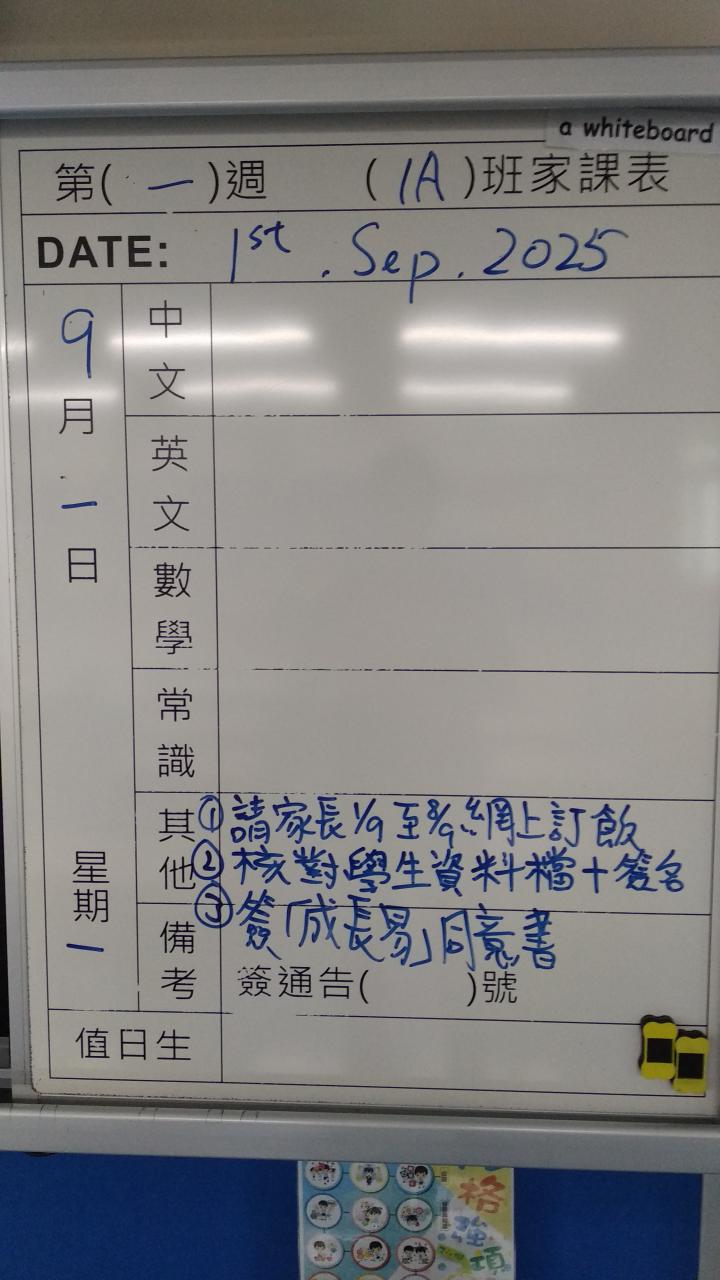 a whiteboard
第( 一 )週 ( 1A )班家課表
DATE: 1st. Sep. 2025
9月一日
星期一
中文
英文
數學
常識
其他
① 請家長1/9至8/9網上訂飯
② 核對學生資料檔+簽名
③ 簽「成長易」同意書
備考
簽通告( )號
值日生
格
強
項